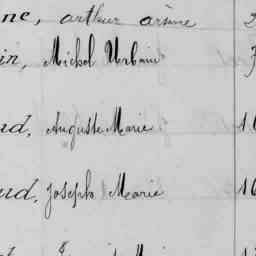 ne, arthur arsène
in, Michel Urbain
ud, Auguste Marie
ud, Joseph Marie